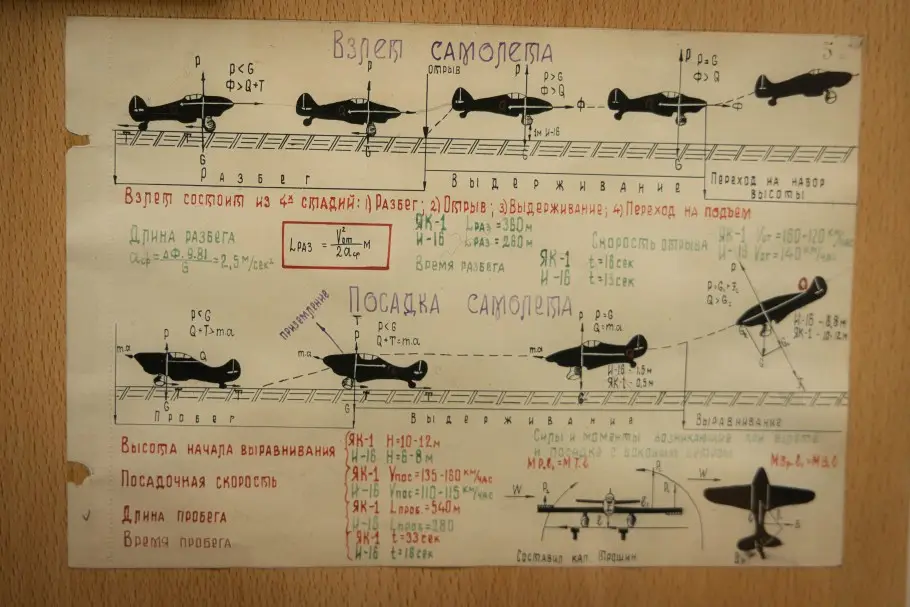 Взлет самолета
P P<G Ф>Q+T
P
отрыв
P P>G Ф>Q
P P=G Ф>Q
Ф
Ф
1м И-16
T
G
G
G
G
Разбег
Выдерживание
Переход на набор высоты
Взлет состоит из 4х стадий: 1) Разбег; 2) Отрыв; 3) Выдерживание; 4) Переход на подъем
Длина разбега
aср = ΔФ·9.81/G = 2,5 м/сек²
Lраз = V²от/2aср м
ЯК-1 Lраз=360м
И-16 Lраз=260м
Время разбега
ЯК-1 t=18сек
И-16 t=13сек
Скорость отрыва
ЯК-1 Vот=160-120 км/час
И-16 Vот=140 км/час
Посадка самолета
P<G
Q+T=m.a
приземление
T
P<G
Q+T=m.a
P=G
Q=m.a
P
Q>G₂
И-16 - 8,8м
ЯК-1 - 10-12м
m.a
P
Q
m.a
P
m.a
P
И-16 -
ЯК-1 - 0,5м
T
G
T
G
G
Пробег
Выдерживание
Выравнивание
Высота начала выравнивания
ЯК-1 H=10-12м
И-16 H=6-8м
Посадочная скорость
ЯК-1 Vпос=135-160 км/час
И-16 Vпос=110-115 км/час
Длина пробега
ЯК-1 Lпроб.=540м
И-16 Lпроб=280
Время пробега
ЯК-1 t=33сек
И-16 t=18сек
Силы и моменты возникающие при взлете
и посадке с боковым ветром
W
W
Составил кап. Трошин